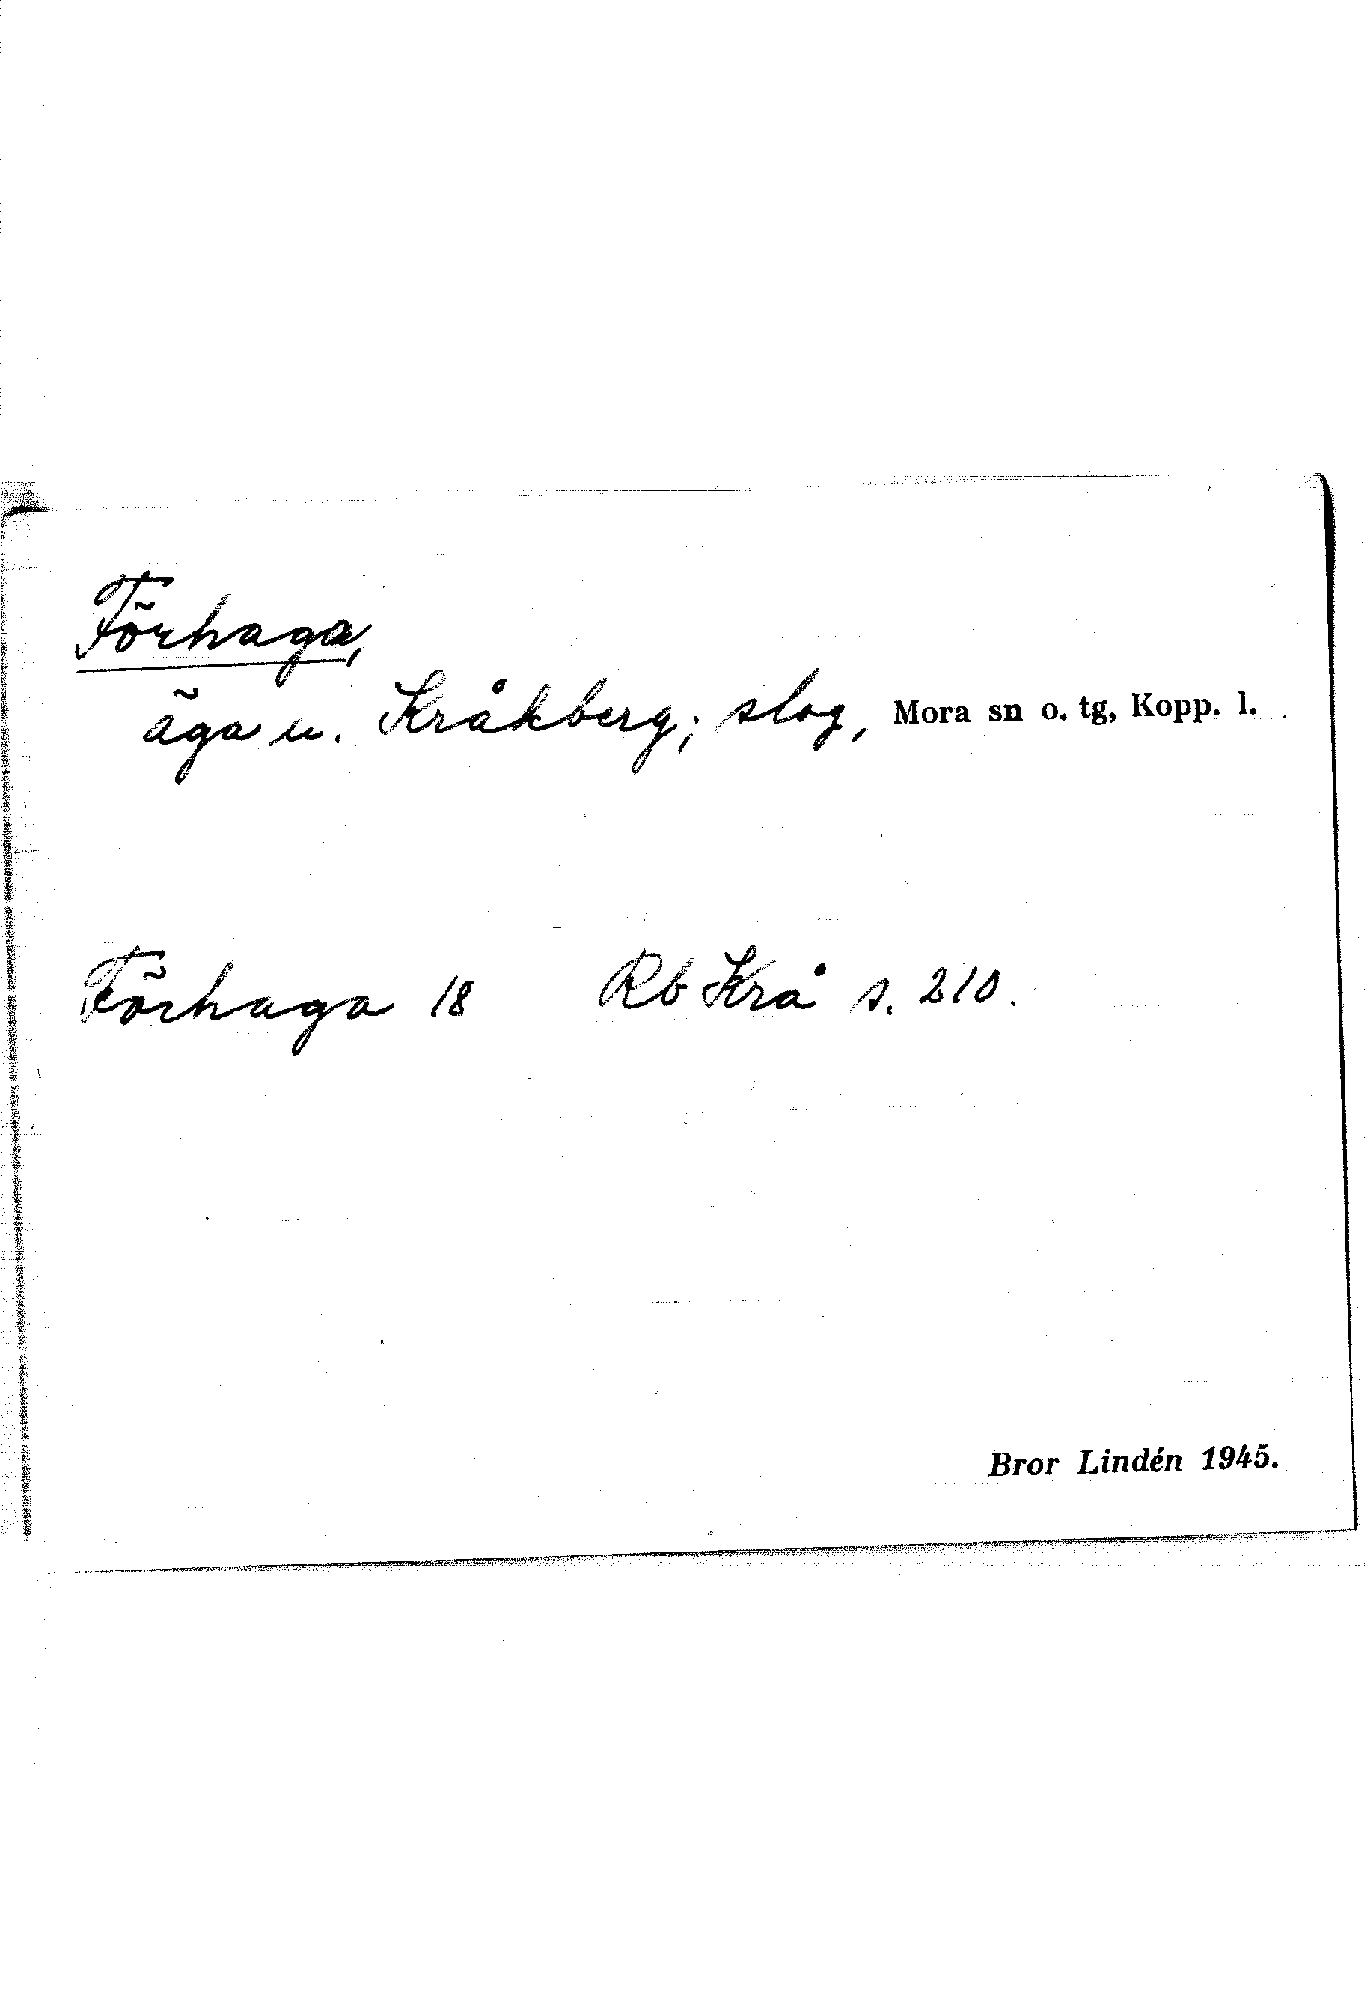 Förhaga,
äga u. Kråkberg; slog, Mora sn o. tg, Kopp. l.
Förhaga 18 Rb Krå s. 210.
Bror Lindén 1945.